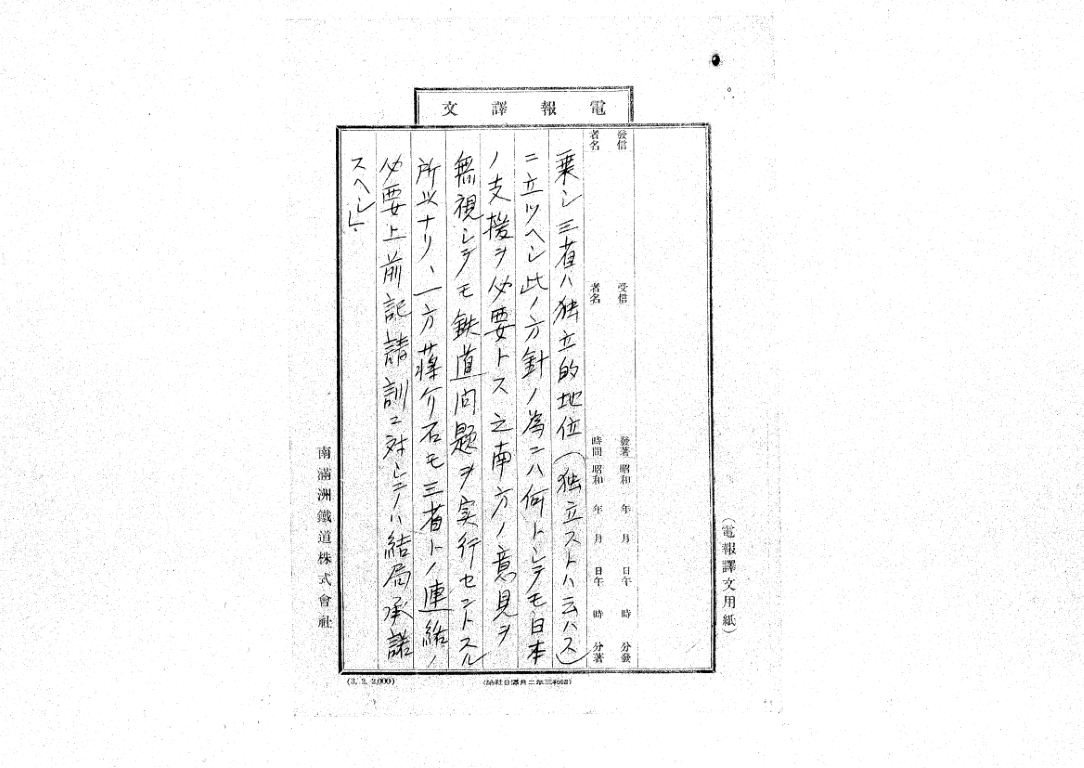 電報譯文
發信者名
受信者名
發著時間
昭和 年 月 日午 時 分發
昭和 年 月 日午 時 分著
乗シ三省ハ独立的地位(独立ストハ云ハス)
ニ立ツヘシ此ノ方針ノ為ニハ何トシテモ日本
ノ支援ヲ必要トス之南方ノ意見ヲ
無視シテモ鉄道問題ヲ実行セントスル
所以ナリ、一方蒋介石モ三省トノ連絡ノ
必要上前記請訓ニ対シテハ結局承諾
スヘシ」.
(電報譯文用紙)
南滿洲鐵道株式會社
(3. 2. 2,000)